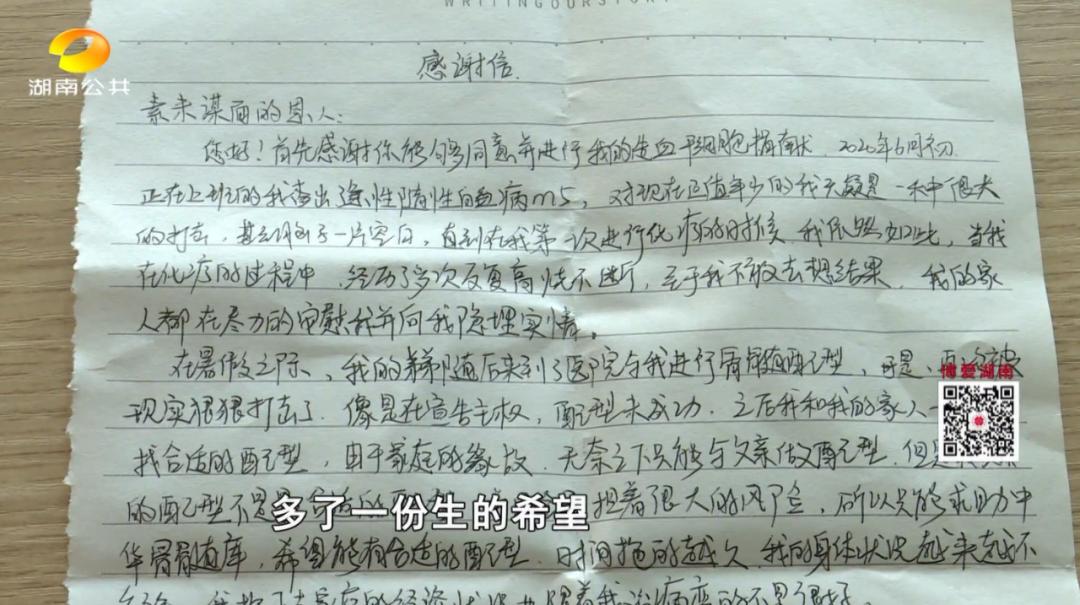 WRITINGOURSTORY
湖南公共
感谢信.
素未谋面的恩人:
您好!首先感谢你能够同意并进行我的造血干细胞捐献.2020年6月初
正在上班的我查出急性髓性白血病m5,对现在正值年少的我无疑是一种很大
的打击,甚至脑子一片空白,直到在我第一次进行化疗的时候.我依然如此,当我
在化疗的过程中,经历了多次反复高烧不断,至于我不敢去想结果.我的家
人都在尽力的安慰我并向我隐埋实情。
在暑假之际,我的弟弟随后来到了医院与我进行骨髓配型,可是,再次被
现实狠狠打击了.像是在宣告主权,配型未成功.之后我和我的家人一
找合适的配型,由于家庭的缘故.无奈之下只能与父亲做配型.但是
的配型不是 担着很大的风险,所以只能求助中
华骨髓库,希望能有合适的配型.时间拖的越久.我的身体状况越来越不
博爱湖南
多了一份生的希望